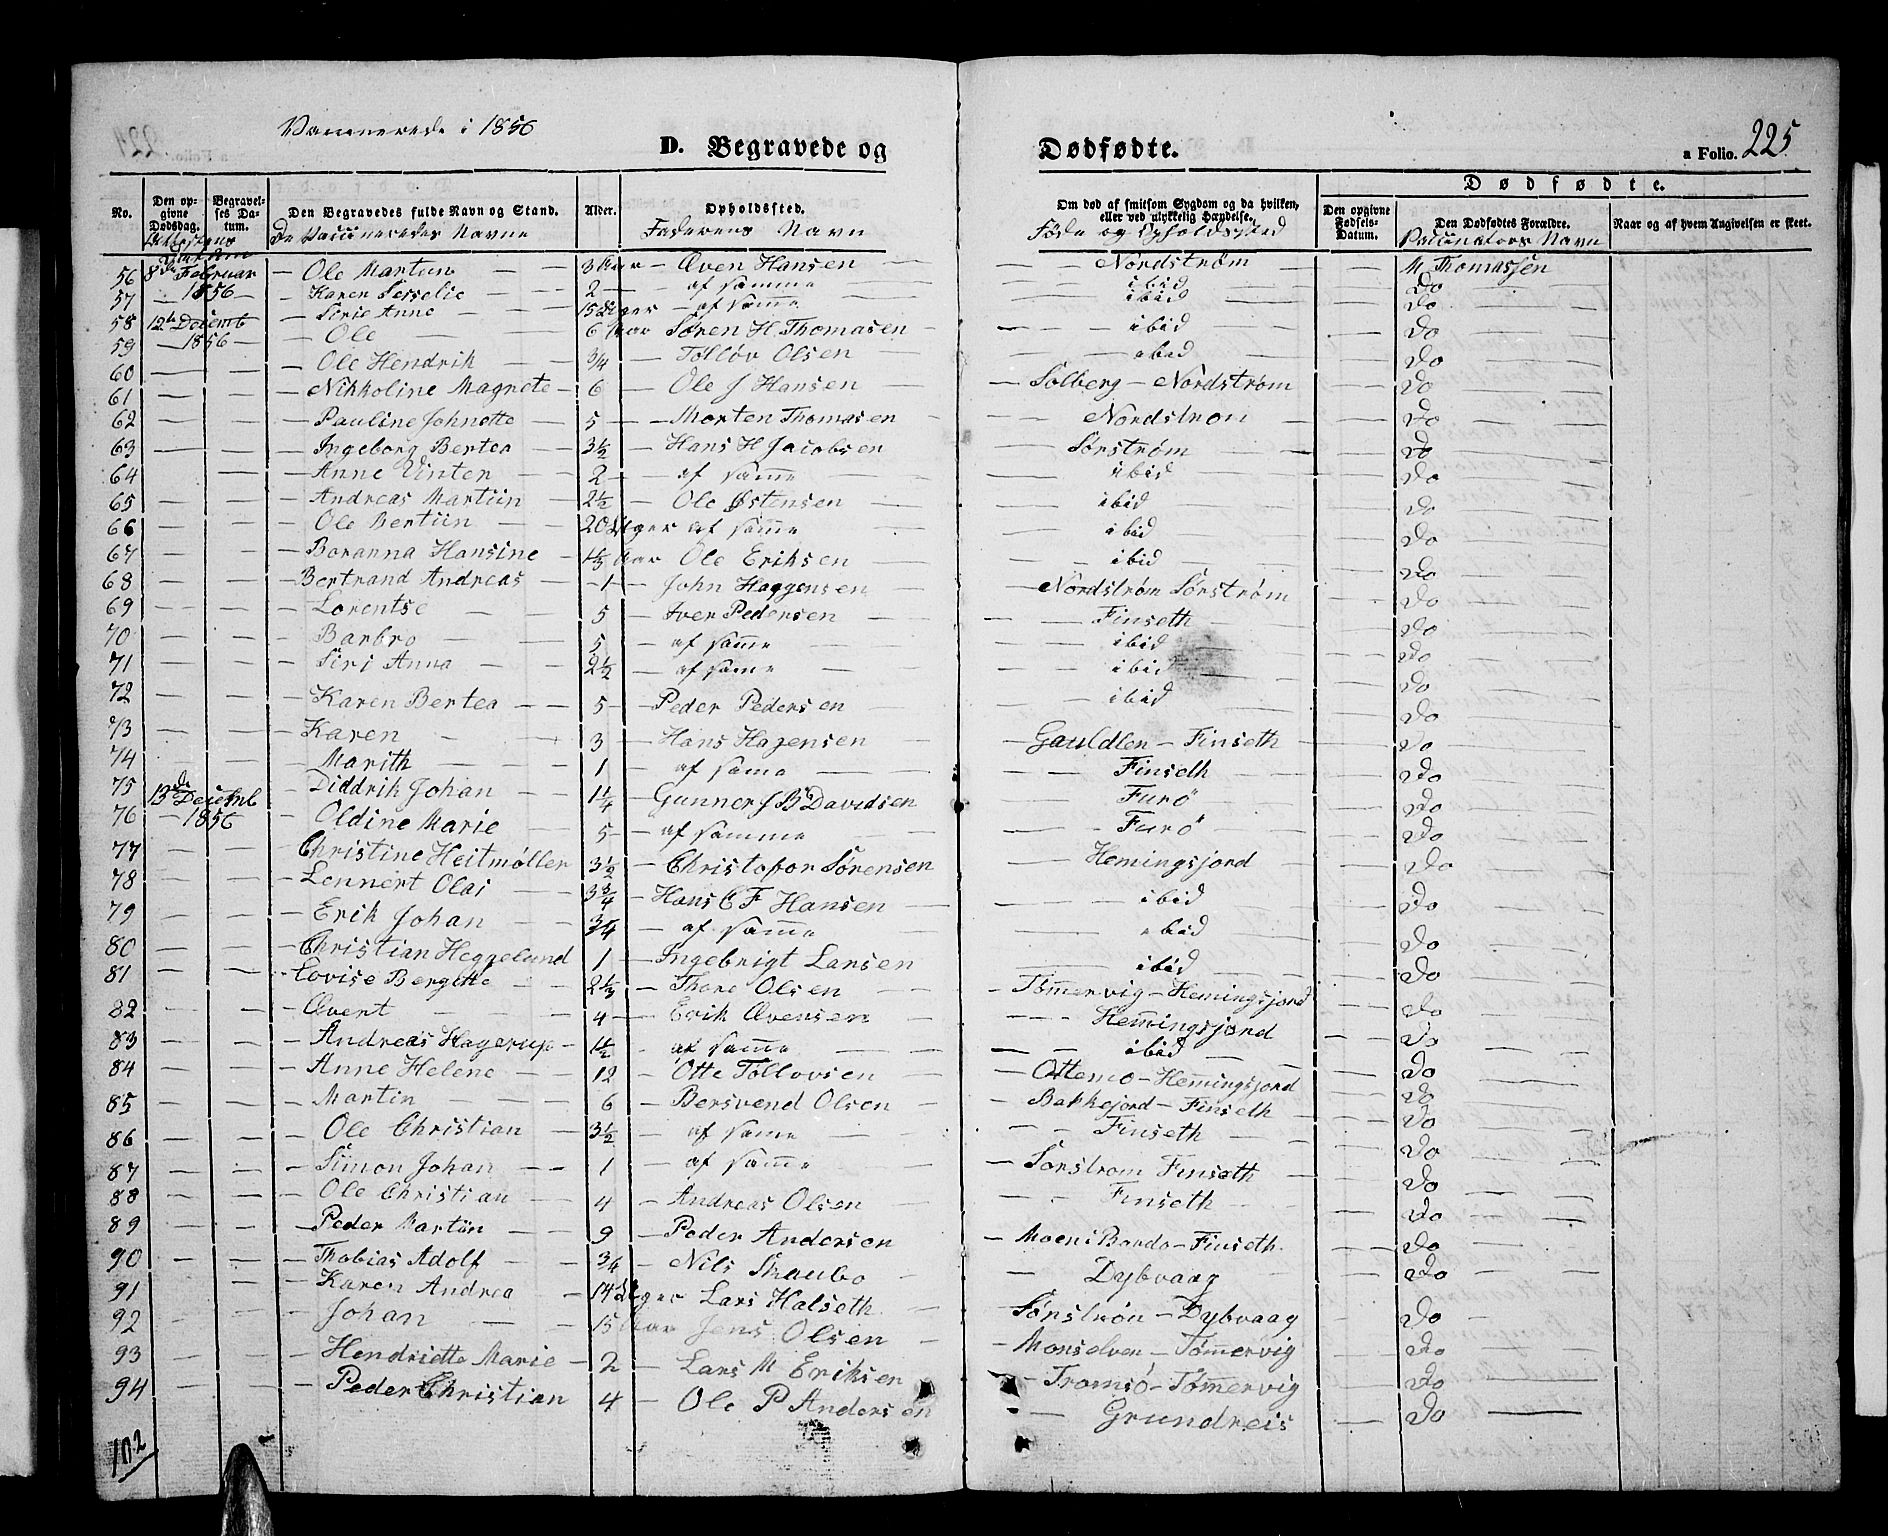 Vaccinerede i 1856
D. Begravede og Dødfødte.
a Folio. 225
No.
Den opgivne Dødsdag.
Begravelses Datum.
Den Begravedes fulde Navn og Stand.
Alder.
Opholdssted.
Om død af smitsom Sygdom og da hvilken, eller ved ulykkelig Hændelse.
Dødfødte.
Den opgivne Fødsels-Datum.
Den Dødfødtes Forældre.
Naar og af hvem Angivelsen er skeet.
Attestens Datum
De Vaccineredes Navne
Faderens Navn
Føde og Opholdssted
Vaccinators Navn
56 8de Februar — Ole Martin 3 Aar — Æven Hansen — Nordstrøm — M. Thomassen
57 — 1856 — Karen Sesselie — 2 — af samme — ibid — Do
58 12te Decemb — Sirie Anne — 15 Uger — af same — ibid — Do
59 — 1856 — Ole — 6 Aar Søren H. Thomasen — ibid — Do
60 — Ole Hendrik — 3/4 — Tolløv Olsen — ibid — Do
61 — Nikkoline Magrete — 6 — Ole J Hansen — Solberg — Nordstrøm — Do
62 — Pauline Johnette — 5 — Morten Thomasen — Nordstrøm — Do
63 — Ingeborg Bertea — 3 1/2 — Hans H Jacobsen — Sørstrøm — Do
64 — Anne Vinter — 2 — af samme — ibid — Do
65 — Andreas Martiin — 2 1/2 — Ole Østensen — ibid — Do
66 — Ole Bertiin — 20 Uger af samme — ibid — Do
67 — Boranna Hansine — Aar Ole Eriksen — ibid — Do
68 — Bertrand Andreas — 1 — John Haggensen — Nordstrøm Sørstrøm — Do
69 — Lorentse — 5 — Iver Pedersen — Finseth — Do
70 — Barbro — 5 — af samme — ibid — Do
71 — Siri Anna — 2 1/2 — af samme — ibid — Do
72 — Karen Bertea — 5 — Peder Pedersen — ibid — Do
73 — Karen — 3 — Hans Hagensen — Gauldlen — Finseth — Do
74 — Marith — 1 — af same — Finseth — Do
75 13de Decemb — Diddrik Johan — 1 1/4 — Gunner J B Davidsen — Furø — Do
76 — 1856 — Oldine Marie — 5 — af samme — Furø — Do
77 — Christine Heitmøller 3 1/2 — Christofor Sørensen — Hemingsjord — Do
78 — Lennert Olai — 3 3/4 — Hans C F Hansen — ibid — Do
79 — Erik Johan — 3/4 — af samme — ibid — Do
80 — Christian Heggelund 1 — Ingebrigt Larsen — ibid — Do
81 — Lovise Bergette — 2 1/3 — Thore Olsen — Tømmervig — Hemingsjord — Do
82 — Ævert — 4 — Erik Ævensen — Hemingsjord — Do
83 — Andreas Hagerup — 1 1/2 — af samme — ibid — Do
84 — Anne Helene — 12 — Otte Tollovsen — Ottemo — Hemingsjord — Do
85 — Martin — 6 — Bersvend Olsen — Bakkejord — Finseth — Do
86 — Ole Christian — 3 1/2 — af samme — Finseth — Do
87 — Simon Johan — 1 — af samme — Sørstrøm Finseth — Do
88 — Ole Christian — 4 — Andreas Olsen — Finseth — Do
89 — Peder Martin — 9 — Peder Andersen — Moen i Bardo — Finseth — Do
90 — Thobias Adolf — 3/4 — Nils Straubo — Dybvaag — Do
91 — Karen Andrea — 14 Uger Lars Halseth — Sørstrøm — Dybvaag — Do
92 — Johan — 15 Aar Jens Olsen — Monselven — Tømmervig — Do
93 — Hendriette Marie — 2 — Lars M Eriksen — Tromsø — Tømmervig — Do
94 — Peder Christian 4 — Ole P Andersen — Grundreis — Do
102